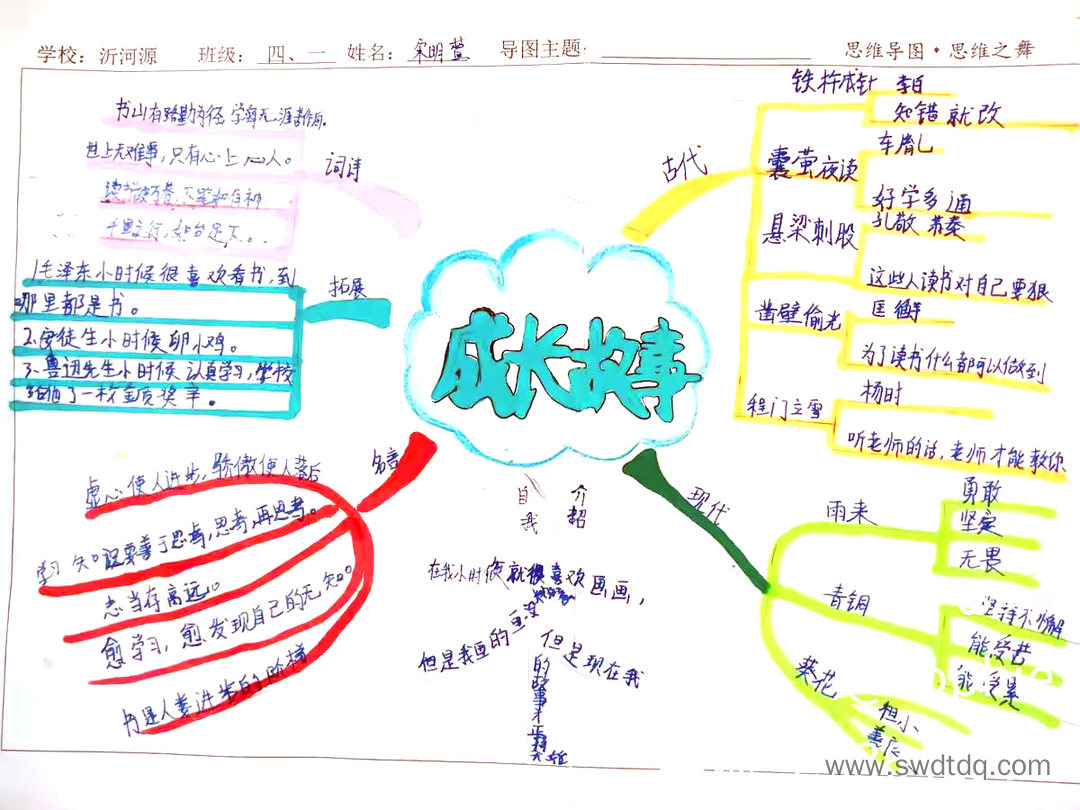 学校：沂河源 班级：四、一 姓名：宋明萱 导图主题：
思维导图·思维之舞
成长故事
词诗
书山有路勤为径 学海无涯苦作舟。
世上无难事，只有心上心人。
读书破万卷，下笔如有神
千里之行，始自足下。
拓展
1.毛泽东小时候很喜欢看书，到
哪里都是书。
2.安徒生小时候卵小鸡。
3.鲁迅先生小时候认真学习，学校
了一枚金质奖章。
名言
虚心使人进步，骄傲使人落后
学习知识要善于思考，思考，再思考。
志当存高远。
愈学习，愈发现自己的无知。
书是人类进步的阶梯
自我
介绍
在我小时候就很喜欢画画，
但是我画的画没
但是现在我
的故事才正
古代
铁杵成针
李白
知错就改
囊萤夜读
车胤
好学多通
悬梁刺股
孔敬 苏秦
这些人读书对自己要狠
凿壁偷光
匡衡
为了读书什么都可以做到
程门立雪
杨时
听老师的话，老师才能教你
现代
雨来
勇敢
坚定
无畏
青铜
坚持不懈
能受苦
能受累
葵花
胆小
www.swdtdq.com